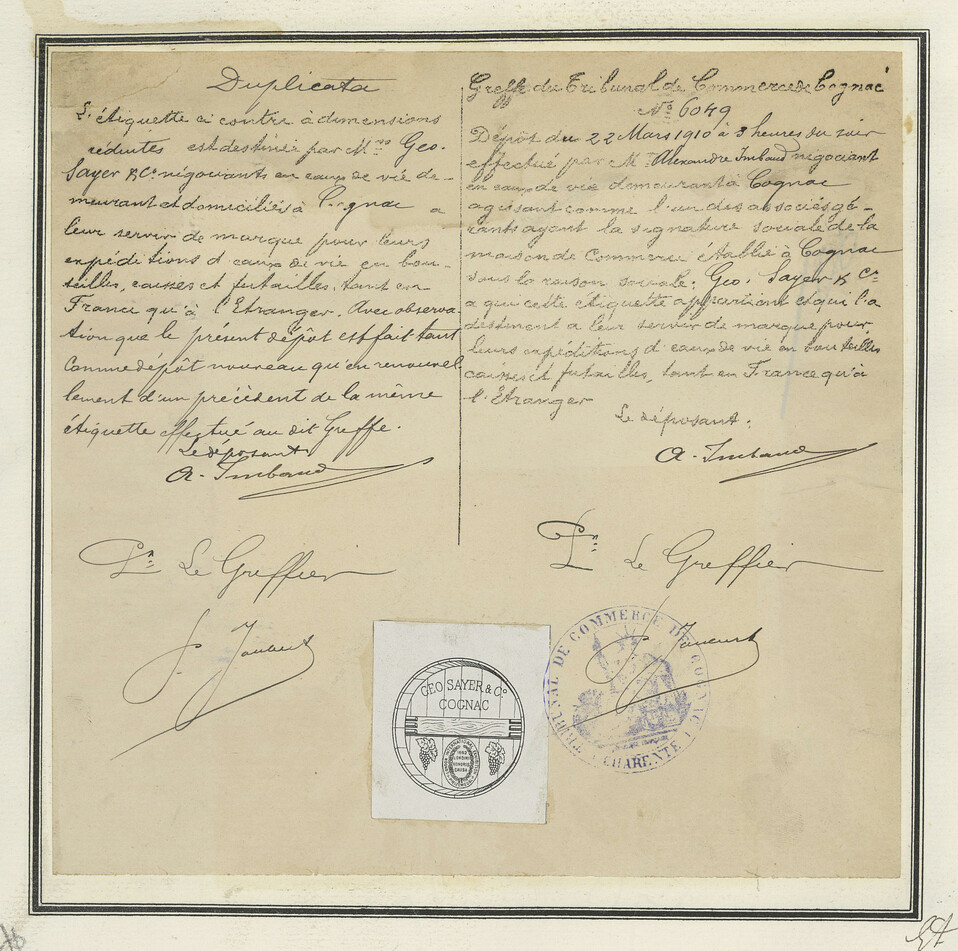 Duplicata
L'étiquette ci contre à dimensions
réduites est destinée par Mrs Geo.
Sayer & Co négociants en eaux de vie de-
meurant et domiciliés à Cognac a
leur servir de marque pour leurs
expéditions d'eaux de vie en bou-
teilles, caisses et futailles, tant en
France qu'à l'Etranger. Avec observa-
tion que le présent dépôt est fait tant
comme dépôt nouveau qu'en renouvel
lement d'un précédent de la même
étiquette effectué au dit Greffe.
Le déposant
A. Imbaud
Pr Le Greffier
Greffe du Tribunal de Commerce de Cognac
No 6049
Dépôt du 22 Mars 1910 à 3 heures du soir
effectué par Mr Alexandre Imbaud négociant
en eaux de vie demeurant à Cognac
agissant comme l'un des associés gé-
rants ayant la signature sociale de la
maison de Commerce établie à Cognac
sous la raison sociale: Geo. Sayer & Co
a qui cette étiquette appartient et qui l'a
destinent a leur servir de marque pour
leurs expéditions d'eaux de vie en bouteilles
caisses et futailles, tant en France qu'à
l'Etranger
Le déposant:
A. Imbaud
Pr Le Greffier
GEO SAYER & Co
COGNAC
TRIBUNAL DE COMMERCE DE COGNAC
CHARENTE